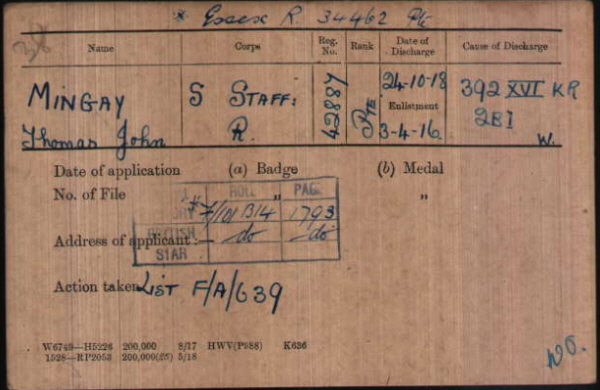 * Essex R. 34462 Pte
38
Name Corps Reg. No. Rank Date of Discharge Cause of Discharge
MINGAY S STAFF: 42887 Pte 24-10-18 392 XVI KR
Enlistment 2BI
Thomas John R. 3-4-16 W.
Date of application (a) Badge (b) Medal
No. of File " "
ROLL PAGE
* 7/101 B14 1793
Address of applicant :— BRITISH do do
STAR
Action taken LIST F/A/639
W6749—H5226 200,000 8/17 HWV(P988) K636
1528—RP2053 200,000(25) 5/18
WO.